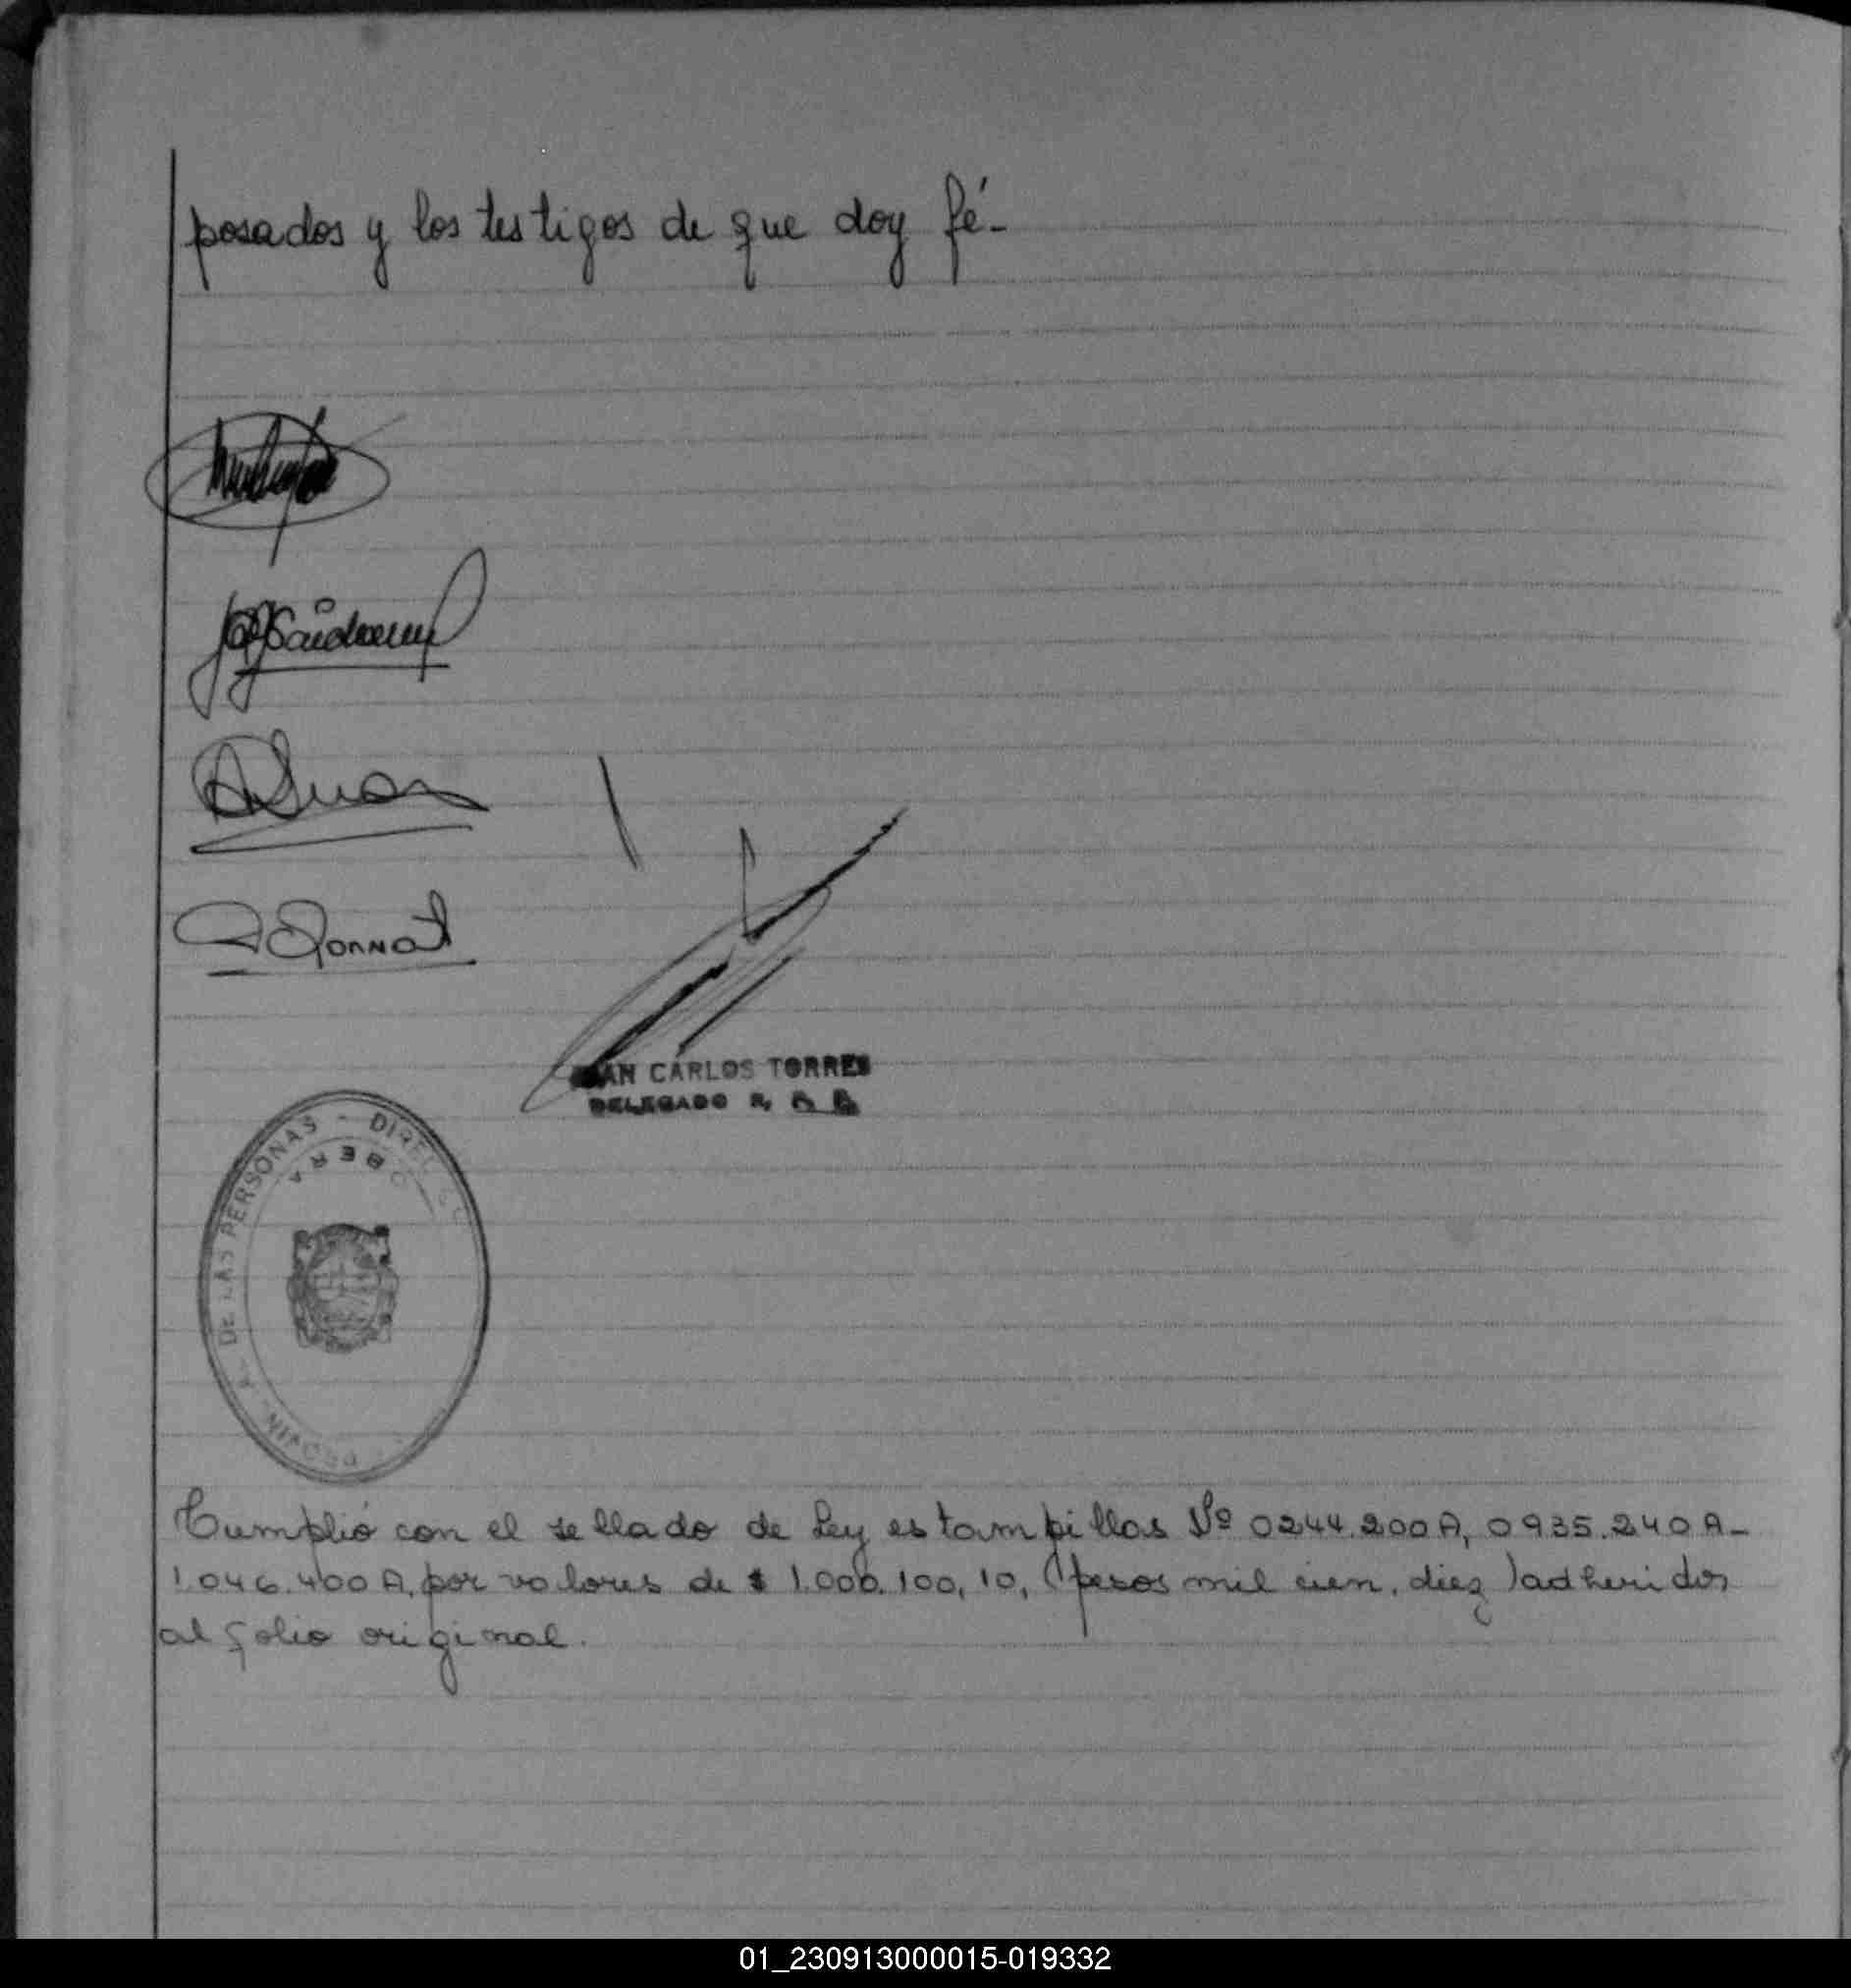 posados y los testigos de que doy fé-
CARLOS TORRES
DELEGADO R.
DE LAS PERSONAS - DIREC
OBERA
Cumplió con el sellado de Ley estampillas Nº 0244.200A, 0935.240A-
1.046.400A, por valores de $ 1.000.100,10, (pesos mil cien, diez) adheridos
al folio original.
01_230913000015-019332